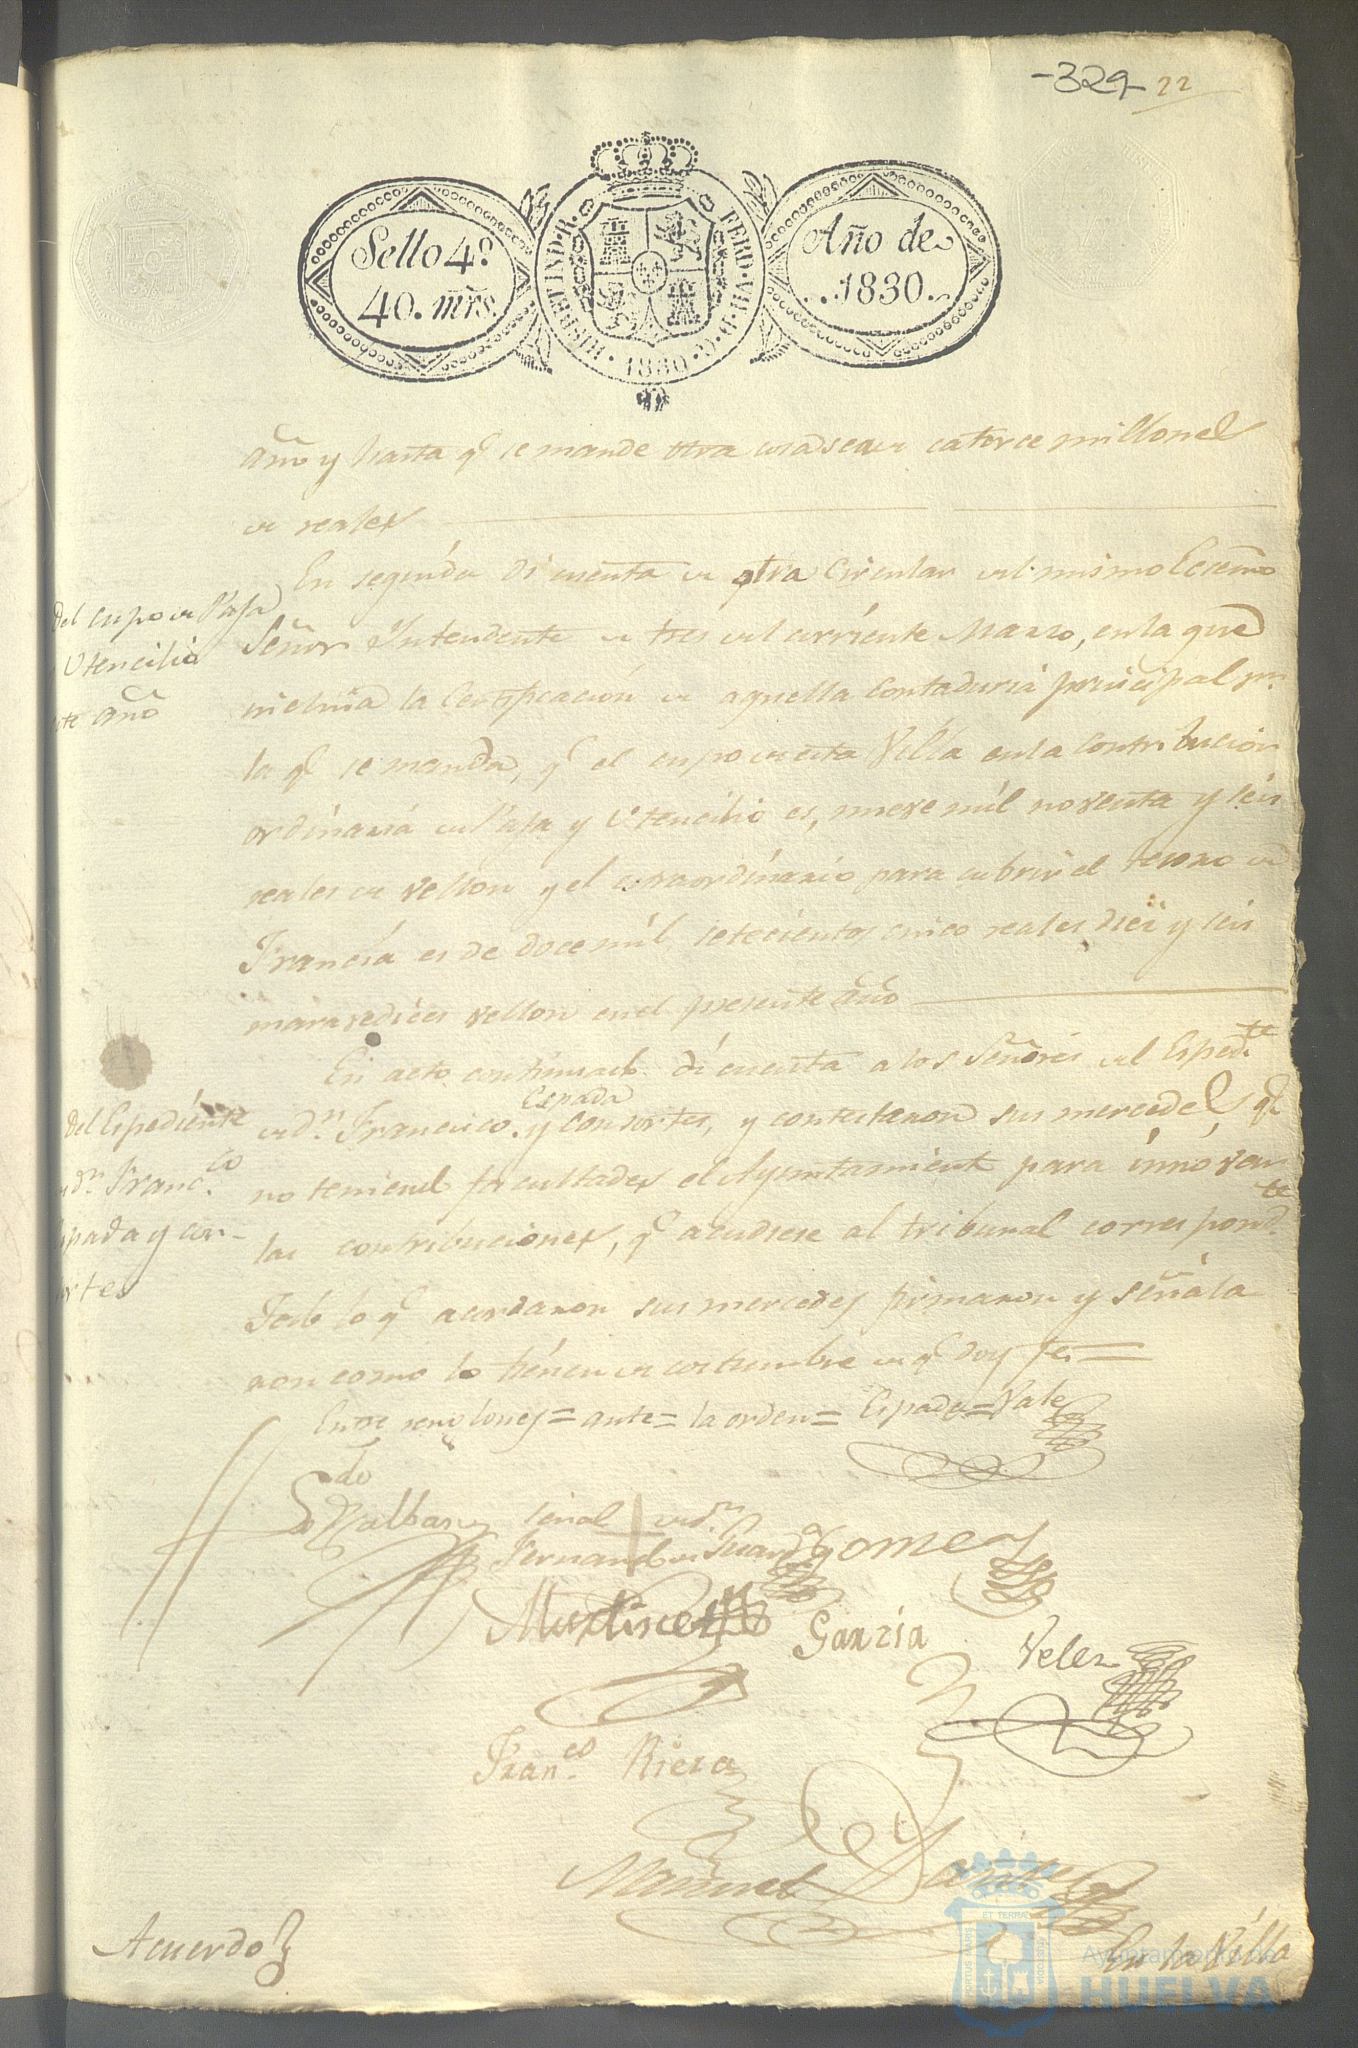 -329- 22
Sello 4º.
40. mrs.
HISP. ET IND. R. FERD. VII. D. G. 1830
Año de
1830.
año y hasta q.e se mande otra cosa sean catorce millones
de reales
En seguida di cuenta de otra Circular del mismo Ecsemo
Del cupo de Paja
Utencilio
este año
Señor Intendente de tres del corriente Marzo, en la que
incluia la Certificacion de aquella Contaduria principal pr.
la q.e se manda, q.e el cupo de esta Villa en la contribucion
ordinaria de Paja y Utencilio es, nueve mil noventa y seis
reales de vellon y el estraordinario para cubrir el
Francia es de doce mil setecientos cinco reales diez y seis
maravedises vellon en el presente año
En acto continuado di cuenta a los Señores del Esped.te
Del Espediente
de dn. Franc.co
Espada y con-
sortes
de dn. Francisco Espada y consortes, y contestaron sus mercedes q.e
no teniendo facultades el Ayuntamiento para innovar
las contribuciones, q.e acudiese al tribunal correspond.te
Todo lo q.e acordaron sus mercedes firmaron y señala
ron como lo tienen de costumbre de q.e doy fe =
Entre renglones = ante = la orden = Espada = Vale
Ldo
Balbas señal de dn.
Fernando de Gomez
Martinez Garzia Velez
Fran.co Riera
Manuel
Acuerdo
En la Villa
PORTUS MARIS ET TERRAE CUSTODIA
Ayuntamiento de
HUELVA